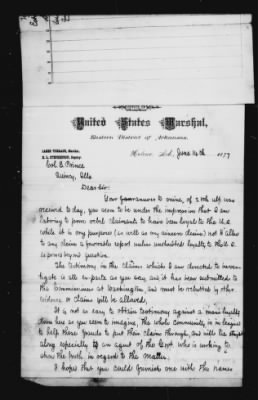 United States Marshal,
Western District of Arkansas.
Helena, Ark, June 14th 1877
Col E Prince
Quincy, Ills
Dear Sir:
Your answer to mine, of 2nd ult was
received to day, you seem to be under the impression that I am
laboring to prove claimants to have been loyal to the U.S.
while it is my purpose (as well as my sincere desire) not to allow
to any claim a favorable report unless unchallenged loyalty to the U.S.
beyond question.
The testimony in the Claims which I am directed to invest-
igate is all ex parte as you say, and it has been submitted to
the Commissioners at Washington, and must be rebutted by other
evidence or Claims will be allowed,
It is not so easy to obtain testimony against a man's loyalty
down here as you seem to imagine, the whole community is in
to help these frauds to put their claims through, and
along especially to an agent of the Govt who is seeking to
show the truth in regard to the matter.
I hope that you could furnish me with the names